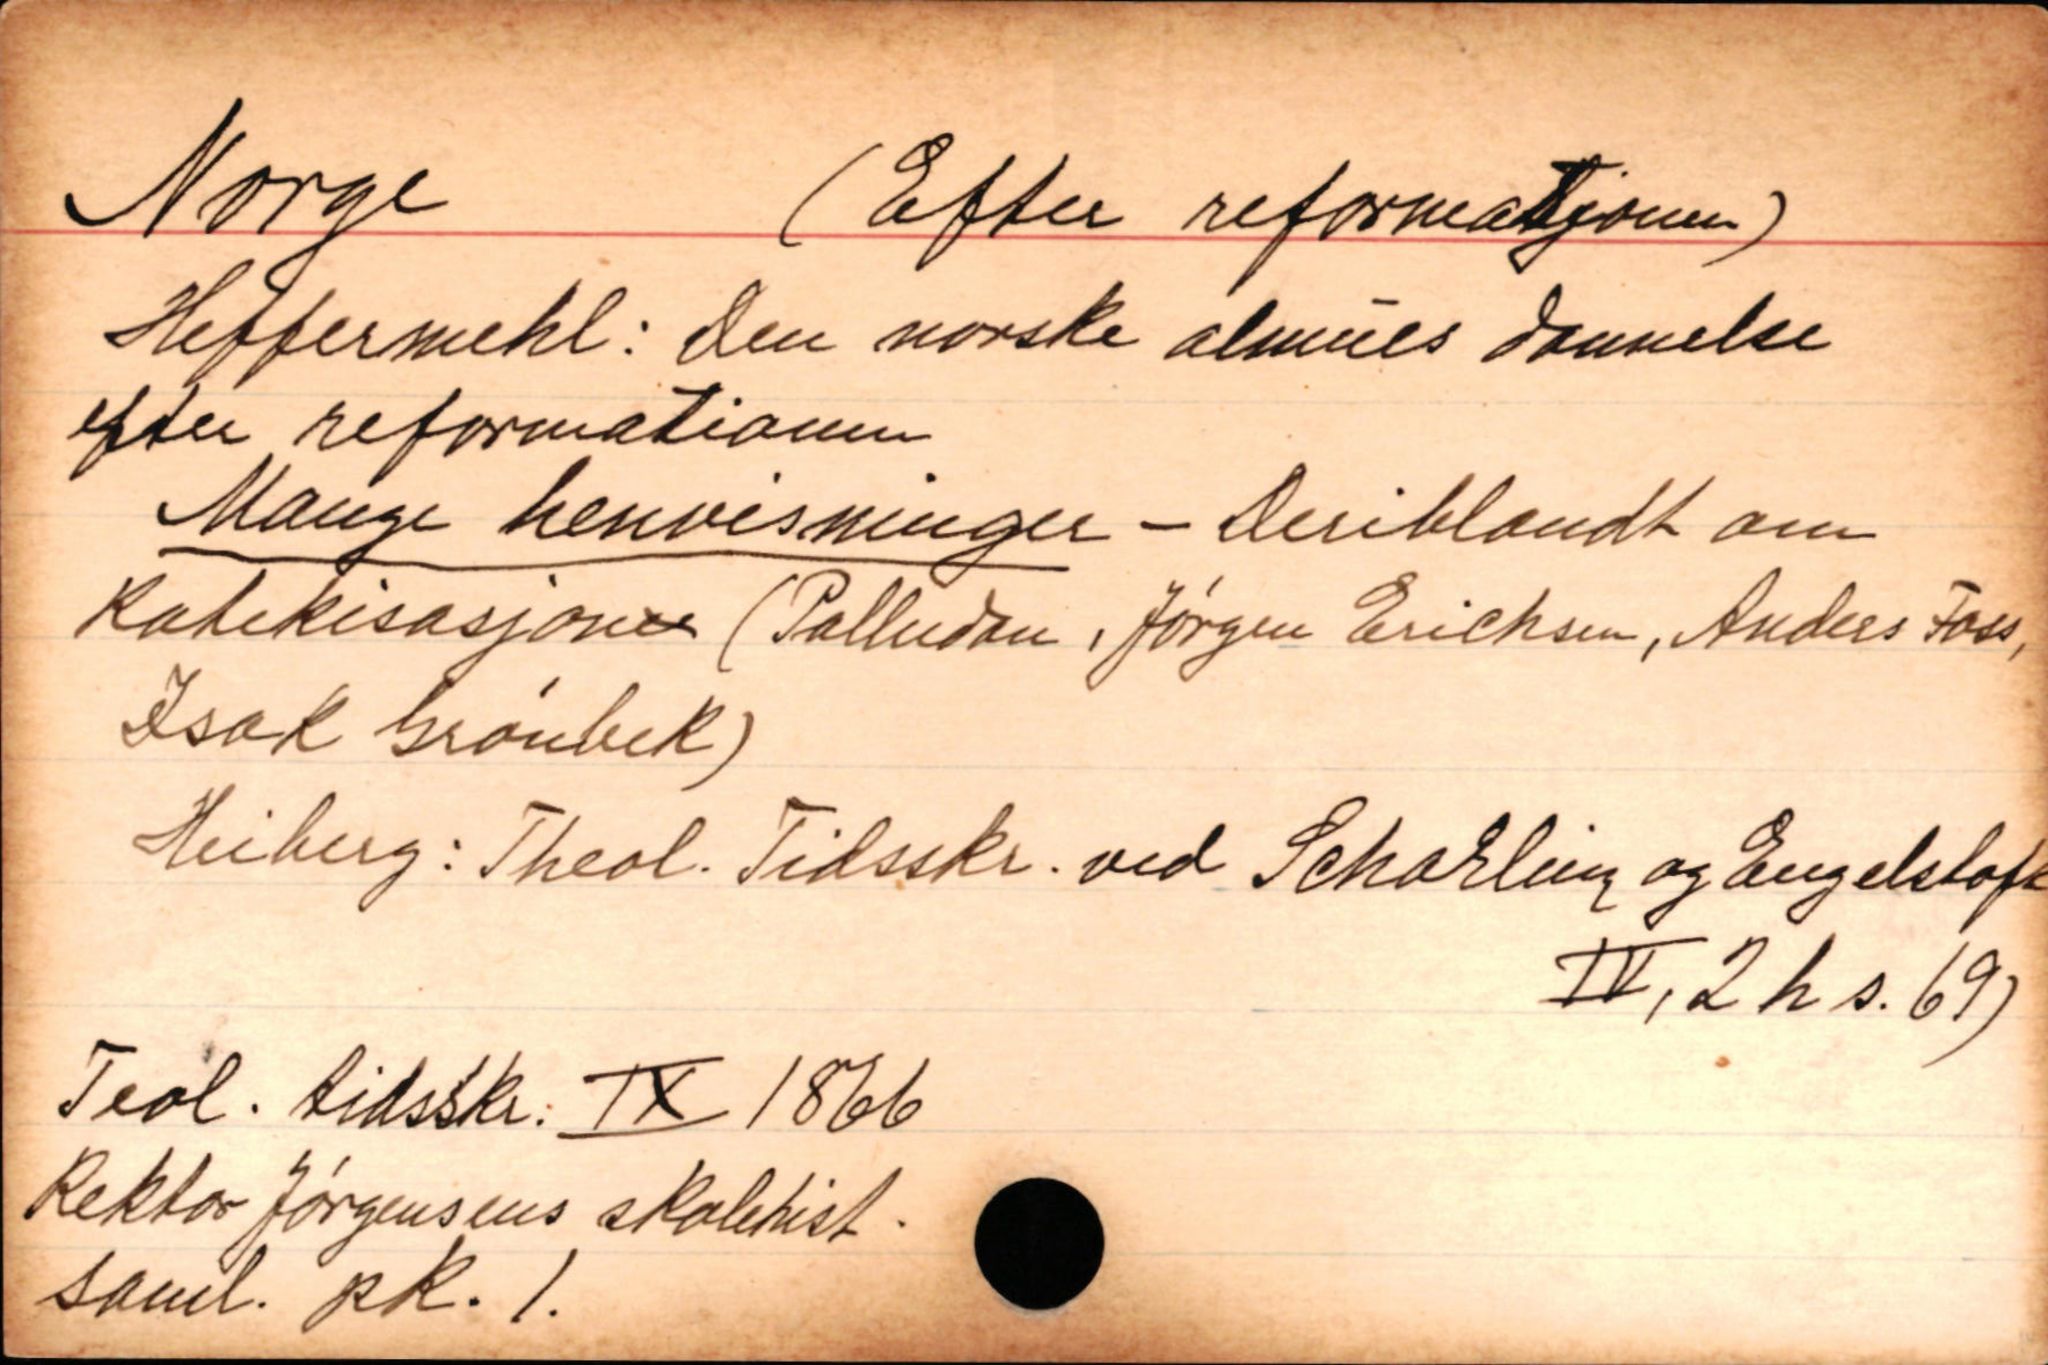 Norge (Efter reformatjonen)
Heffermehl: Den norske almues dannelse
efter reformationen
Mange henvisninger - Deriblandt om
Katekisasjonen (Palludan, Jórgen Erichsen, Anders Foss,
Isak Grónbek)
Heiberg: Theol. Tidsskr. ved Scharling og Engelstoft
IV, 2 h s. 69)
Teol. tidsskr. IX 1866
Rektor Jórgensens skolehist.
saml. pk. 1.